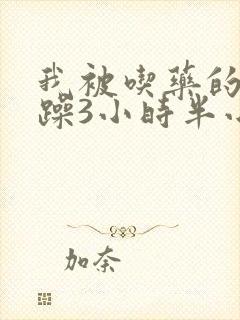 我被喫藥的
躁3小時半
加奈